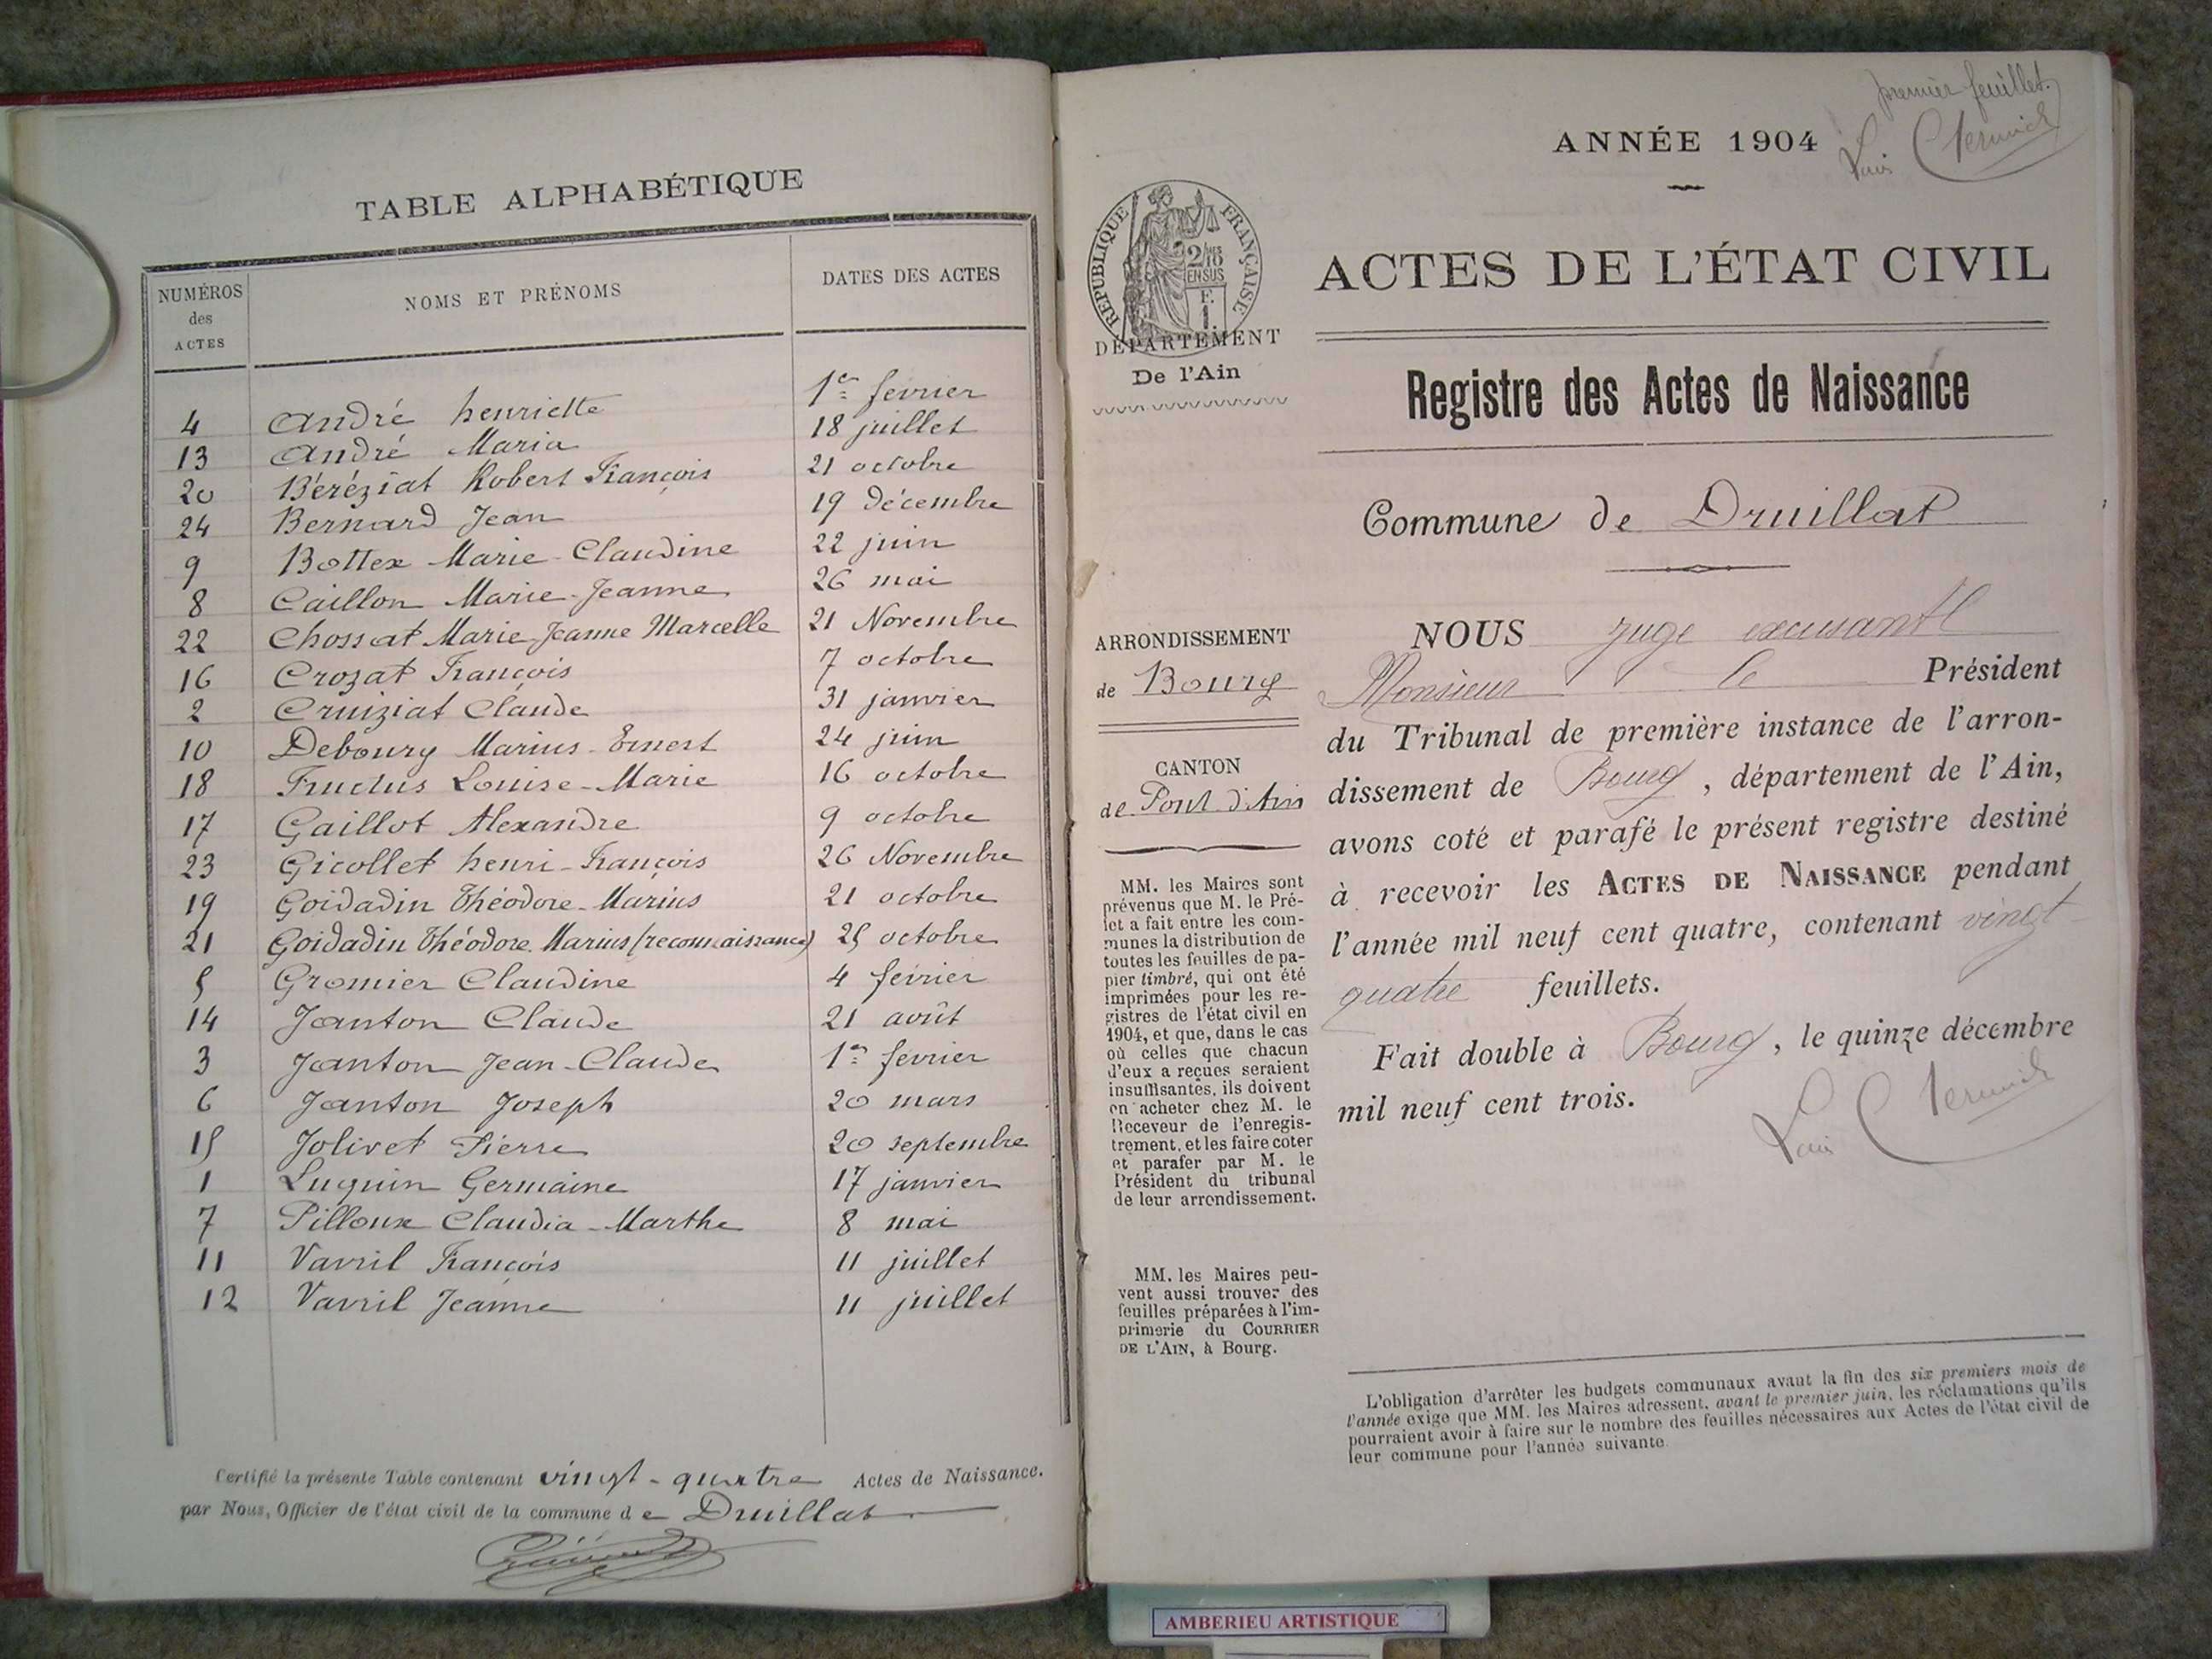 TABLE ALPHABÉTIQUE
NUMÉROS des ACTES
NOMS ET PRÉNOMS
DATES DES ACTES
4 André henriette 1er février
13 André Maria 18 juillet
20 Béréziat Robert François 21 octobre
24 Bernard Jean 19 Décembre
9 Bottex Marie-Claudine 22 juin
8 Caillon Marie-Jeanne 26 mai
22 Chossat Marie-Jeanne Marcelle 21 Novembre
16 Crozat François 7 octobre
2 Cruiziat Claude 31 janvier
10 Deboury Marius-Ernest 24 juin
18 Fructus Louise-Marie 16 octobre
17 Gaillot Alexandre 9 octobre
23 Gicollet henri-François 26 Novembre
19 Goidadin Théodore-Marius 21 octobre
21 Goidadin Théodore Marius (reconnaissance) 25 octobre
5 Gromier Claudine 4 février
14 Janton Claude 21 août
3 Janton Jean-Claude 1er février
6 Janton Joseph 20 mars
15 Jolivet Pierre 20 septembre
1 Luquin Germaine 17 janvier
7 Pilloux Claudia-Marthe 8 mai
11 Vavril François 11 juillet
12 Vavril Jeanne 11 juillet
Certifié la présente Table contenant vingt-quatre Actes de Naissance.
par Nous, Officier de l'état civil de la commune de Druillat
premier feuillet.
ANNÉE 1904
RÉPUBLIQUE FRANÇAISE
2/10 EN SUS
F. 1.
DÉPARTEMENT
De l'Ain
ACTES DE L'ÉTAT CIVIL
Registre des Actes de Naissance
Commune de Druillat
ARRONDISSEMENT
de Bourg
CANTON
de Pont d'Ain
MM. les Maires sont
prévenus que M. le Pré-
fet a fait entre les com-
munes la distribution de
toutes les feuilles de pa-
pier timbré, qui ont été
imprimées pour les re-
gistres de l'état civil en
1904, et que, dans le cas
où celles que chacun
d'eux a reçues seraient
insuffisantes, ils doivent
en acheter chez M. le
Receveur de l'enregis-
trement, et les faire coter
et parafer par M. le
Président du tribunal
de leur arrondissement.
MM. les Maires peu-
vent aussi trouver des
feuilles préparées à l'im-
primerie du COURRIER
DE L'AIN, à Bourg.
NOUS juge
Monsieur le Président
du Tribunal de première instance de l'arron-
dissement de Bourg, département de l'Ain,
avons coté et parafé le présent registre destiné
à recevoir les ACTES DE NAISSANCE pendant
l'année mil neuf cent quatre, contenant vingt
quatre feuillets.
Fait double à Bourg, le quinze décembre
mil neuf cent trois.
L'obligation d'arrêter les budgets communaux avant la fin des six premiers mois de
l'année exige que MM. les Maires adressent, avant le premier juin, les réclamations qu'ils
pourraient avoir à faire sur le nombre des feuilles nécessaires aux Actes de l'état civil de
leur commune pour l'année suivante.
AMBERIEU ARTISTIQUE